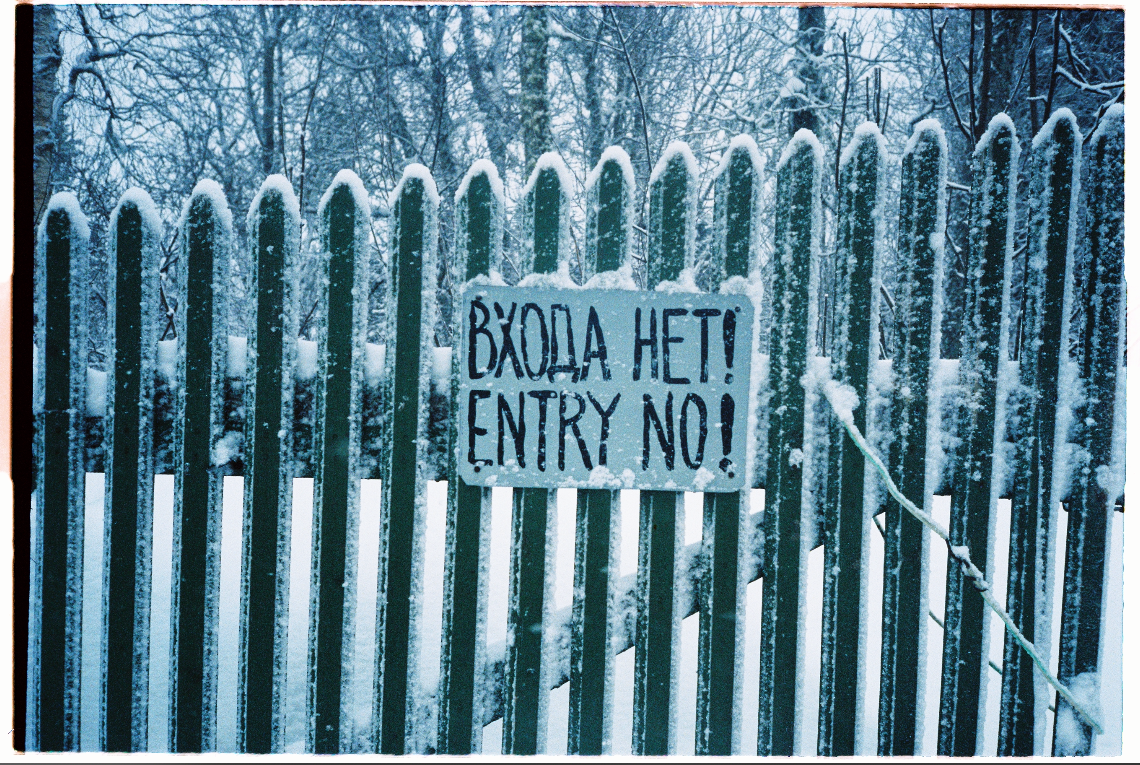 ВХОДА НЕТ!
ENTRY NO!